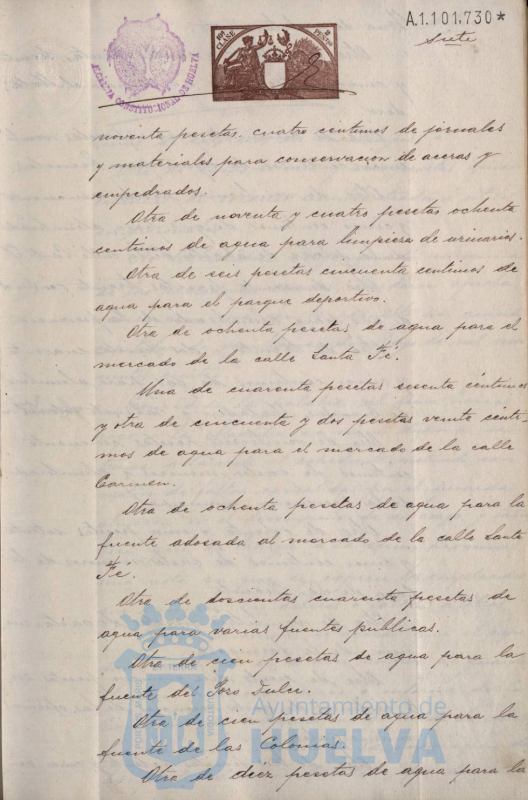 A.1.101,730*
Siete
ALCALDIA CONSTITUCIONAL DE HUELVA
10ª CLASE
2 PESETAS
noventa pesetas cuatro centimos de jornales
y materiales para conservacion de aceras y
empedrados.
Otra de noventa y cuatro pesetas ochenta
centimos de agua para limpieza de urinarios.
Otra de seis pesetas cincuenta centimos de
agua para el parque deportivo.
Otra de ochenta pesetas de agua para el
mercado de la calle Santa Fé.
Una de cuarenta pesetas sesenta céntimos
y otra de cincuenta y dos pesetas veinte cénti-
mos de agua para el mercado de la calle
Carmen.
Otra de ochenta pesetas de agua para la
fuente adosada al mercado de la calle Santa
Fé.
Otra de doscientas cuarenta pesetas de
agua para varias fuentes publicas.
Otra de cien pesetas de agua para la
fuente del Pozo Dulce.
Otra de cien pesetas de agua para la
fuente de las Colonias.
Otra de diez pesetas de agua para la
Ayuntamiento de
HUELVA